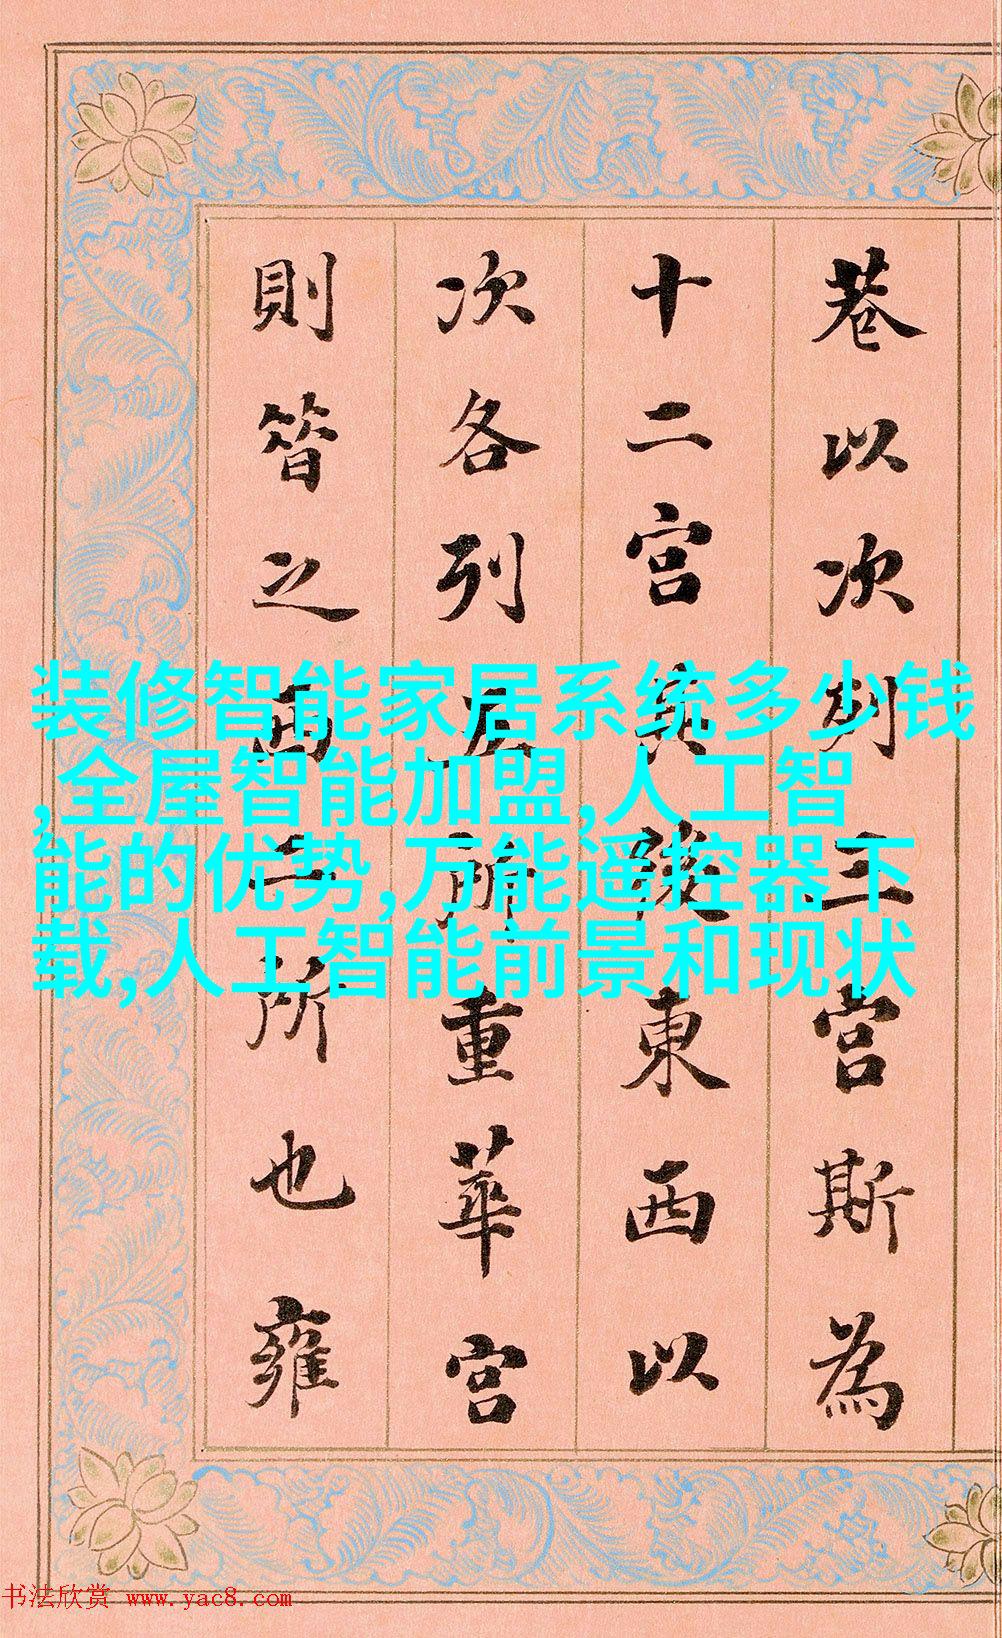 巷以次列三宫斯為
十二宫其後東西以
次各列五所重華宫
則昔之西二所也雍
装修智能家居系统多少钱
,全屋智能加盟,人工智
能的优势,万能遥控器下
载,人工智能前景和现状
书法欣赏 www.yac8.com